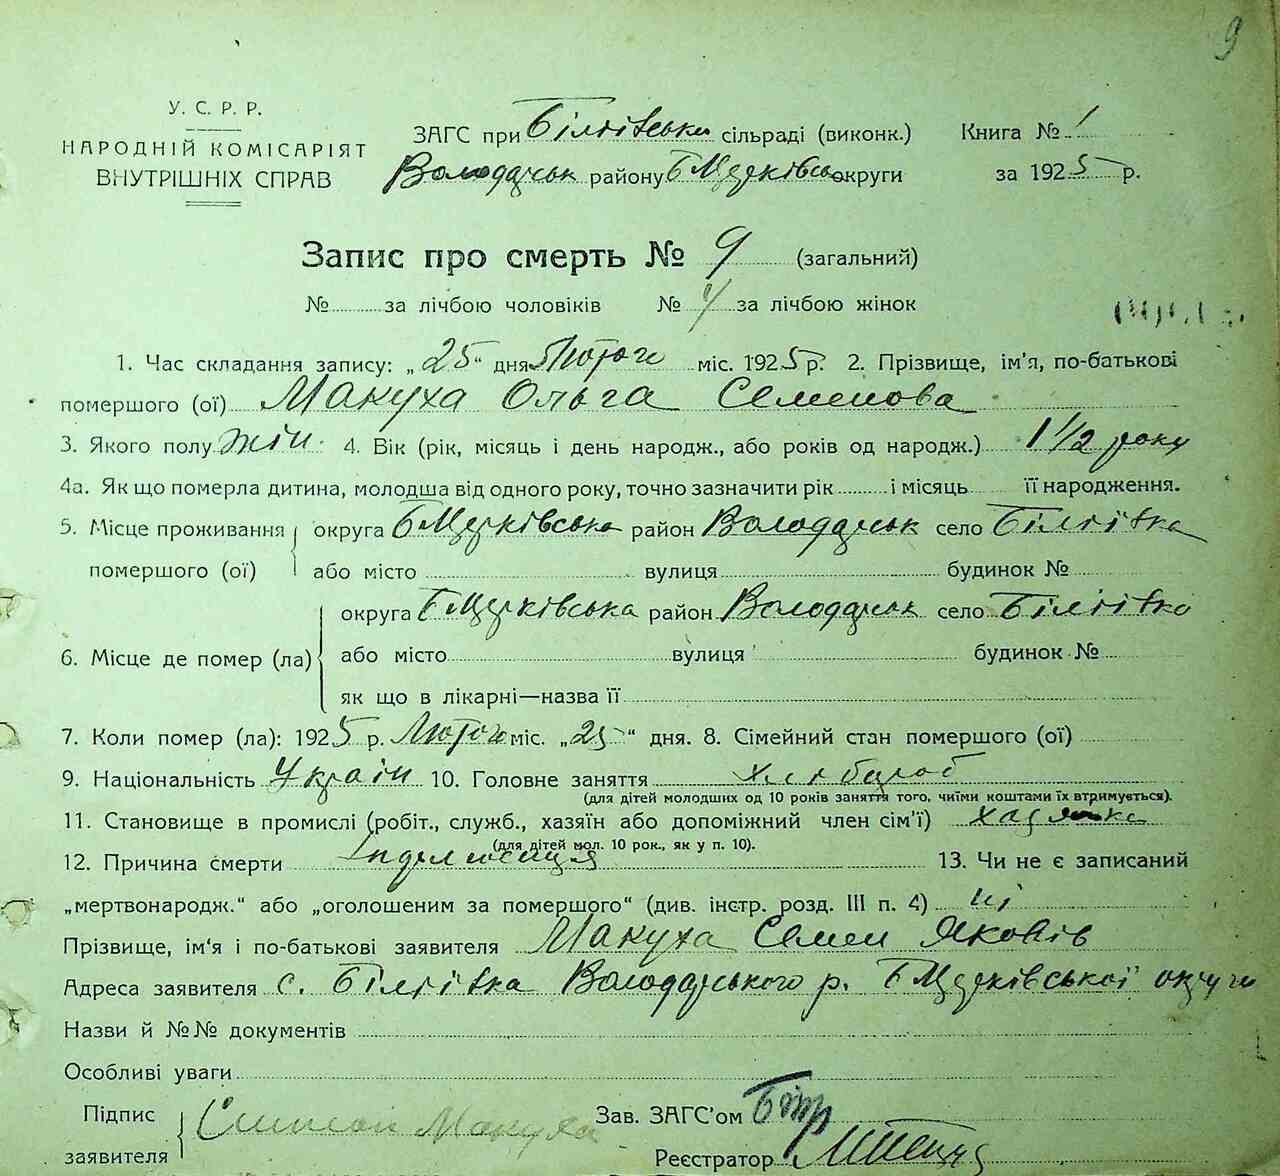 9
У. С. Р. Р.
НАРОДНІЙ КОМІСАРІЯТ
ВНУТРІШНІХ СПРАВ
ЗАГС при Біліївськи сільраді (виконк.) Книга № 1
Володарськ району БЦерківсь округи за 1925 р.
Запис про смерть № 9 (загальний)
№ за лічбою чоловіків № 4 за лічбою жінок
1. Час складання запису: „25“ дня Лютого міс. 1925 р. 2. Прізвище, ім'я, по-батькові
помершого (ої) Макуха Ольга Семенова
3. Якого полу жін. 4. Вік (рік, місяць і день народж., або років од народж.) 1 1/2 року
4а. Як що померла дитина, молодша від одного року, точно зазначити рік і місяць її народження.
5. Місце проживання округа БЦерківська район Володарськ село Біліївка
помершого (ої) або місто вулиця будинок №
округа БЦерківська район Володарськ село Біліївка
6. Місце де помер (ла) або місто вулиця будинок №
як що в лікарні—назва її
7. Коли помер (ла): 1925 р. Лютого міс. „25“ дня. 8. Сімейний стан помершого (ої)
9. Національність Україн 10. Головне заняття хлібороб
(для дітей молодших од 10 років заняття того, чиїми коштами їх втримується).
11. Становище в промислі (робіт., служб., хазяїн або допоміжний член сім'ї) хазяйка
(для дітей мол. 10 рок., як у п. 10).
12. Причина смерти 13. Чи не є записаний
„мертвонародж.“ або „оголошеним за помершого“ (див. інстр. розд. III п. 4) ні
Прізвище, ім'я і по-батькові заявителя Макуха Семен Яковів
Адреса заявителя с. Біліївка Володарського р. БЦерківської округи
Назви й №№ документів
Особливі уваги
Підпис Макуха Зав. ЗАГС'ом
заявителя Реєстратор